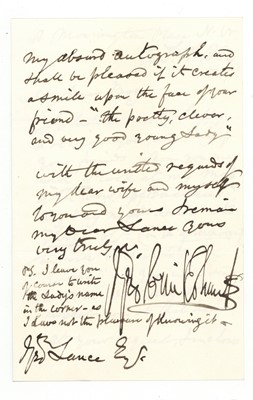 my absurd autograph, and
shall be pleased if it creates
a smile upon the face of your
friend - "the pretty, clever,
and very good young Lady"
with the united regards of
my dear wife and myself
to you and yours I remain
my Dear Lance yours
very truly
PS. I leave you
of course to write
the Lady's name
in the corner - as
I have not the pleasure of knowing it -
Lance Esq.